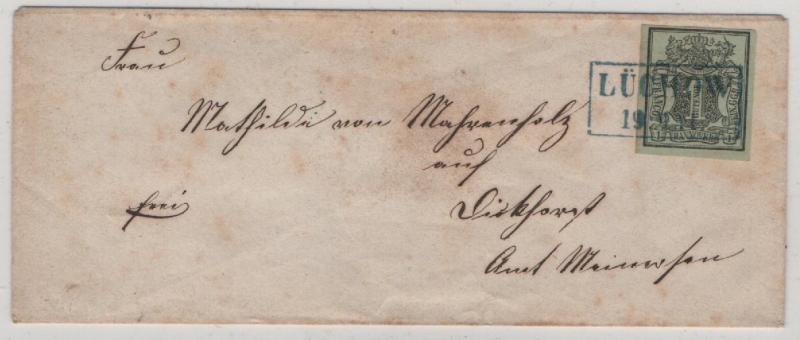 Frau
Mathilde von Mahrenholz
auf
frei
Dickhorst
Amt Meinersen
LÜCHOW
19